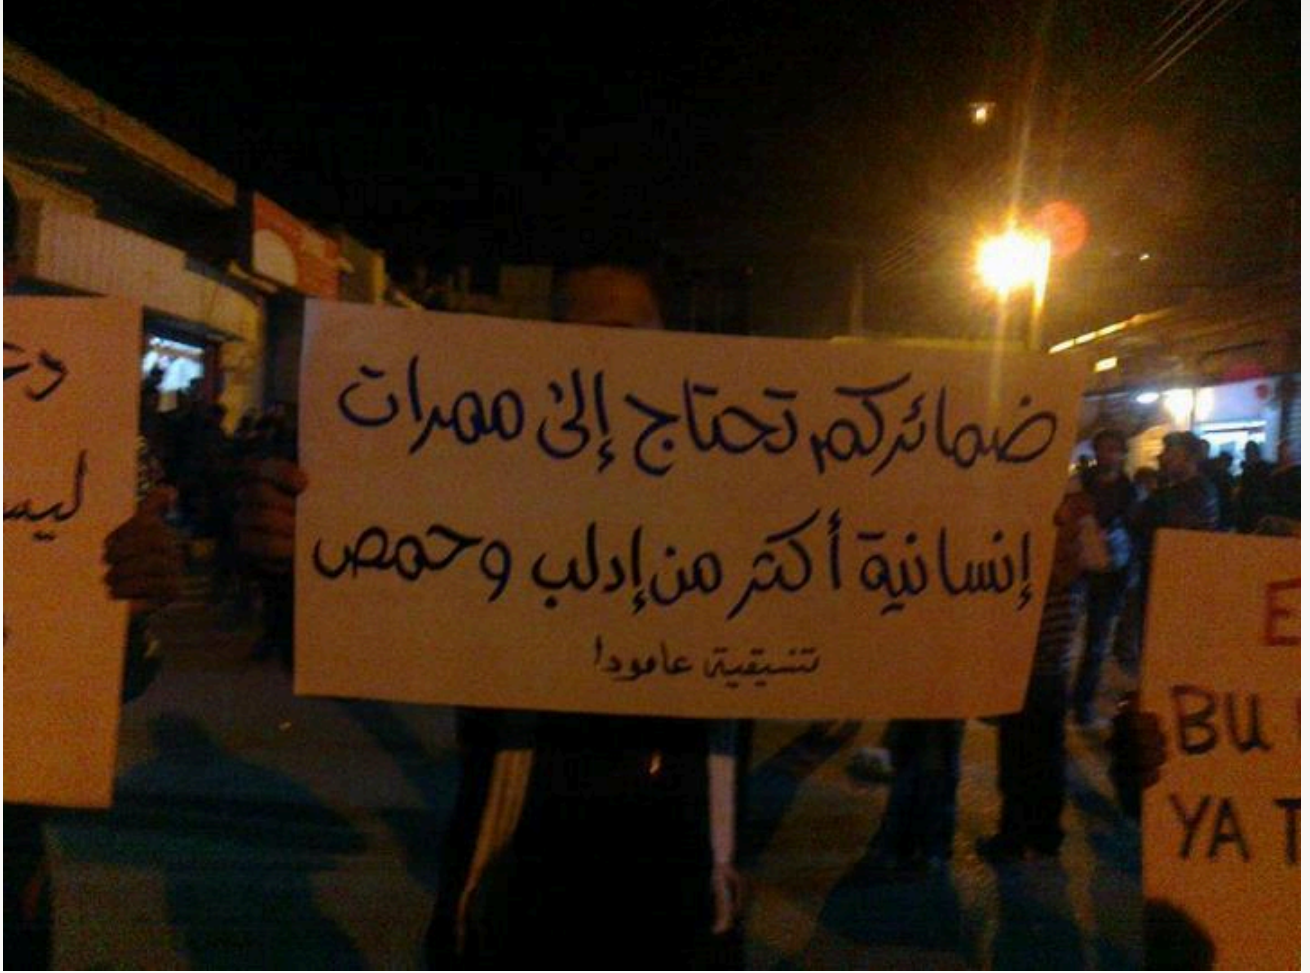 ضمائركم تحتاج إلى ممرات
إنسانية أكثر من إدلب وحمص
تنسيقية عامودا
ليس
BU
YA T